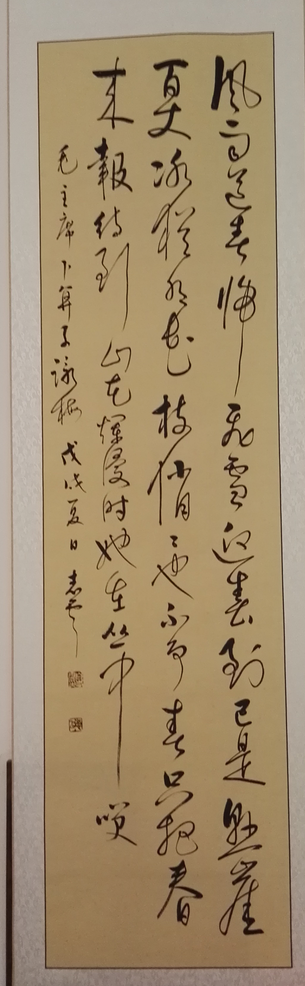 风雨送春归飞雪迎春到已是悬崖
百丈冰犹有花枝俏俏也不争春只把春
来报待到山花烂漫时她在丛中笑
毛主席卜算子咏梅戊戌夏日志云